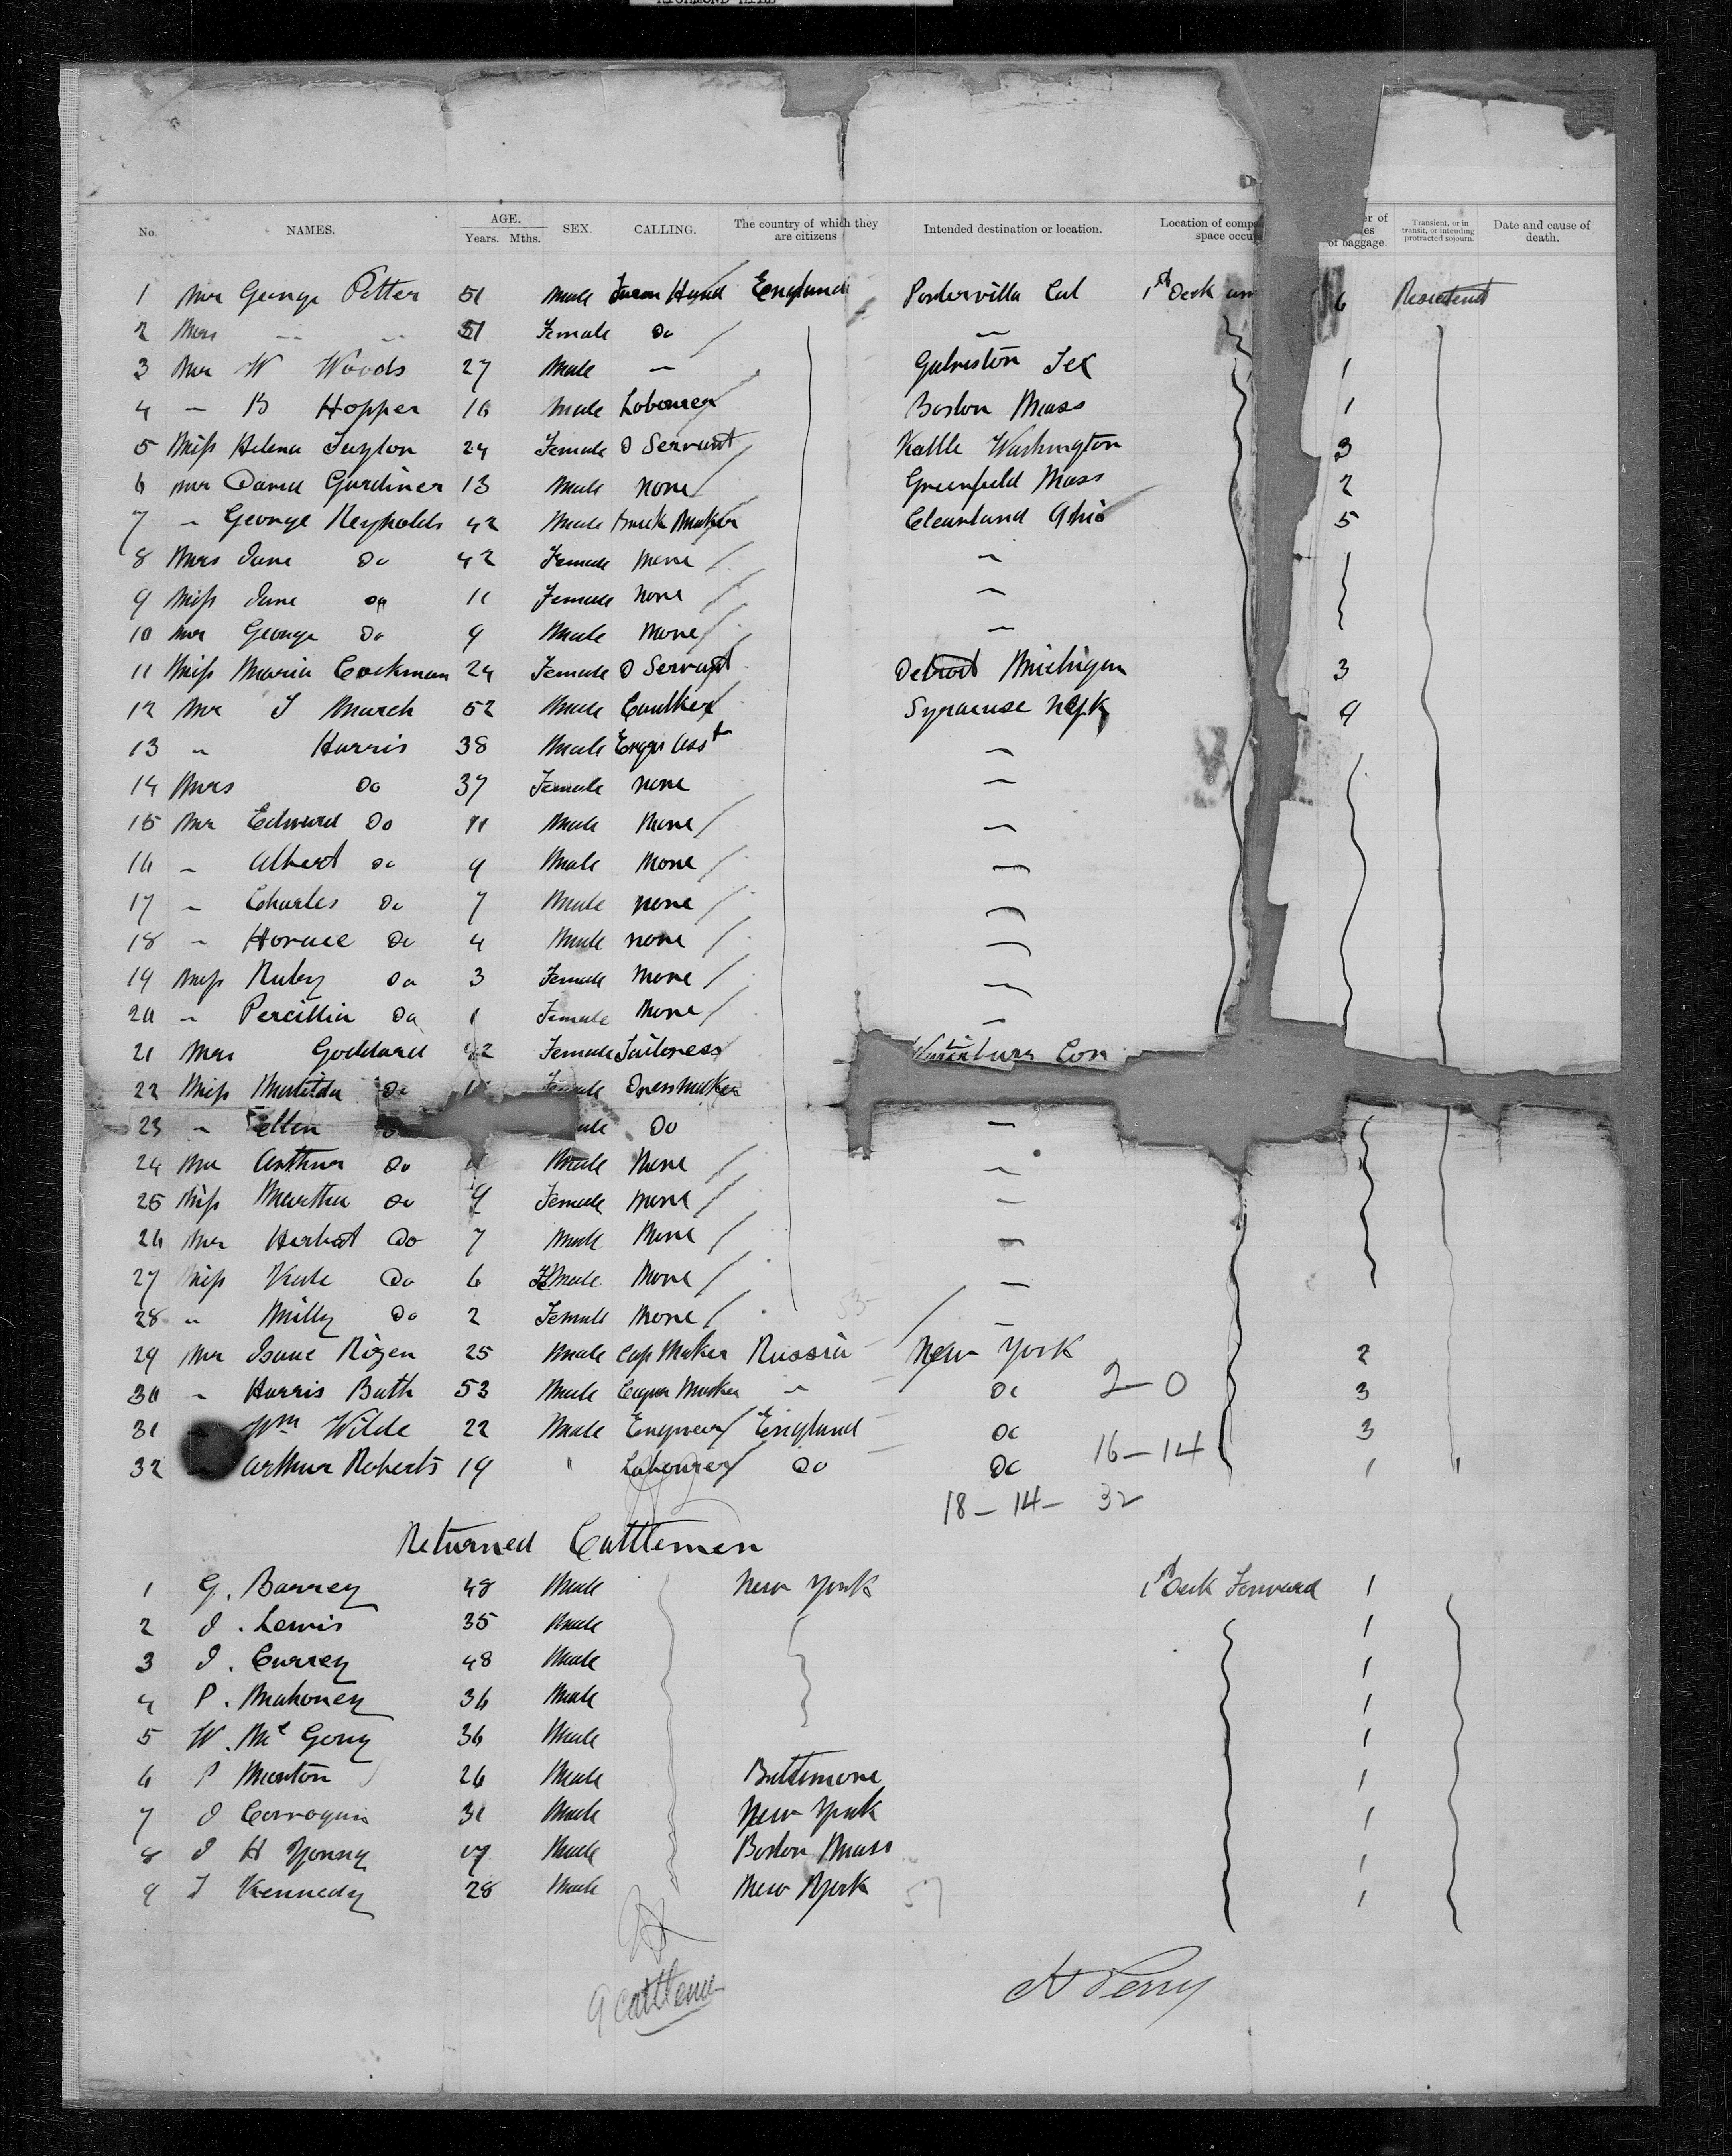 No. NAMES. AGE. Years. Mths. SEX. CALLING. The country of which they are citizens Intended destination or location. Location of space of baggage. Transient, or in transit, or intending protracted sojourn. Date and cause of death.
1 Mr George Potter 51 Male Farm Hand England Portervilla Cal 1st Deck 6
2 Mrs " " 51 Female Do "
3 Mr W Woods 27 Male — Galveston Tex 1
4 " B Hopper 16 Male Labourer Boston Mass 1
5 Miss Helena Taylor 24 Female D Servant Washington 3
6 Mr David Gardiner 13 Male None Greenfield Mass 2
7 " George Reynolds 42 Male Maker Cleavland Ohio 5
8 Mrs Jane Do 42 Female None "
9 Miss Jane Do 11 Female None "
10 Mr George Do 9 Male None "
11 Miss Maria Cockman 24 Female D Servant Detroit Michigan 3
12 Mr J March 52 Male Caulker Syracuse NYk 9
13 " Harris 38 Male Engrs Asst "
14 Mrs Do 37 Female None "
15 Mr Edward Do 11 Male None "
16 " Albert Do 9 Male None "
17 " Charles Do 7 Male None "
18 " Horace Do 4 Male None "
19 Miss Ruby Do 3 Female None "
20 " Percillia Do 1 Female None "
21 Mrs Goddard 42 Female Tailoress Con
22 Miss Matilda Do Dressmaker
23 " Ellen Do "
24 Mr Arthur Do Male None "
25 Miss Martha Do 9 Female None "
26 Mr Herbat Do 7 Male None "
27 Miss Kate Do 6 FeMale None "
28 " Milly Do 2 Female None "
29 Mr Isaac Rizen 25 Male Cap Maker Russia New York 2
30 " Harris Bath 53 Male Maker " Do 2-0 3
31 Wm Wilde 22 Male England Do 16-14 3
32 Arthur Roberts 19 " Labourer Do Do 1
18-14- 32
Returned Cattlemen
1 G. Barrey 48 Male New York 1st Deck Forward 1
2 J. Lewis 35 Male 1
3 J. Currey 48 Male 1
4 P. Mahoney 36 Male 1
5 W. Mc Gory 36 Male 1
6 P Marton 26 Male Baltimore 1
7 J Corrogan 31 Male New York 1
8 J H Young 17 Male Boston Mass 1
9 J Kennedy 28 Male New York 1
9 Cattlemen
H Perry